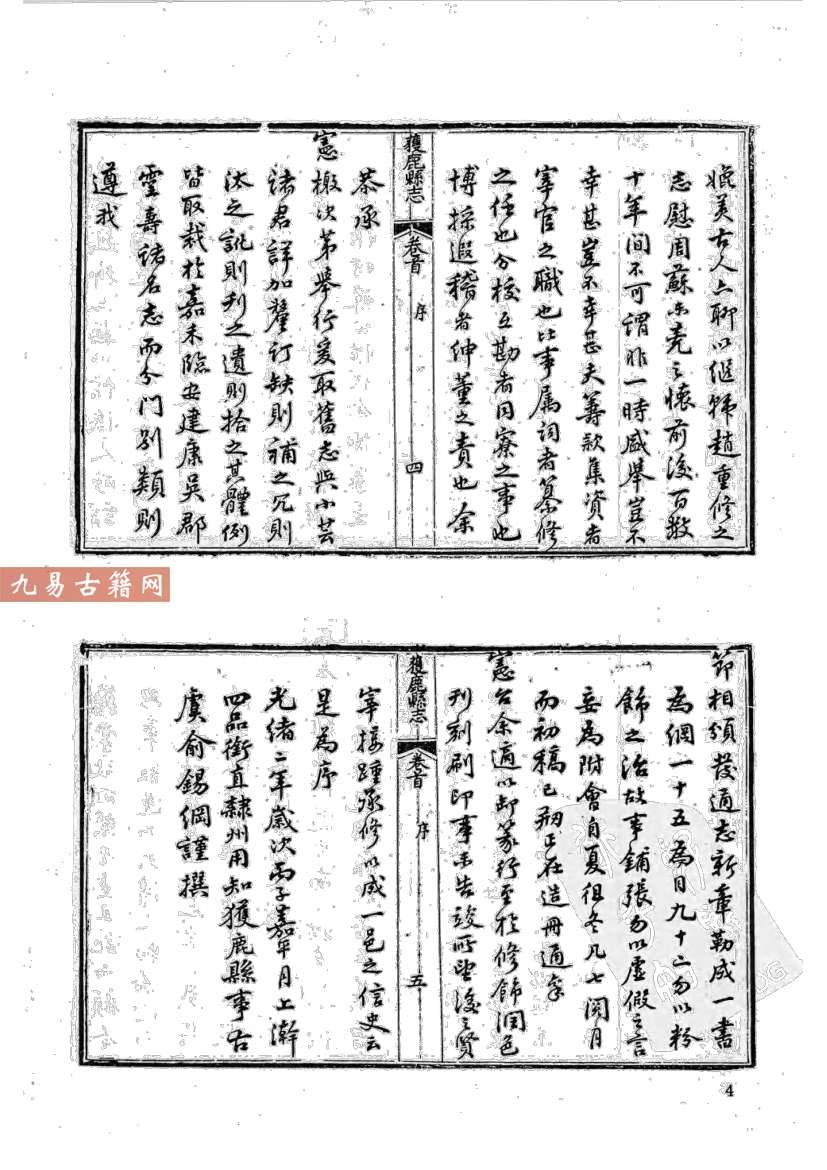 媲美古人亦聊以繼韓趙重修之
志慰周蘇未竟之懷前後百數
十年間不可謂非一時盛舉豈不
幸甚豈不幸甚夫籌款集資者
宰官之職也比事属詞者纂修
之任也分校互勘者同寮之事也
博採遐稽者紳董之責也余
獲鹿縣志
卷首
序
四
恭承
憲檄次第舉行爰取舊志與小芸
諸君詳加釐訂缺則補之冗則
汰之訛則刋之遺則拾之其體例
皆取裁於嘉禾臨安建康吳郡
靈壽諸名志而分門別類則
遵我
九易古籍网
節相頒發通志新章勒成一書
為綱一十五為目九十二勿以粉
飾之治故事鋪張勿以虛假之言
妄為附會自夏徂冬凡七閱月
而初稿已剏正在造冊通稟
憲台余適以卸篆行至於修飾潤色
刋刻刷印事未告竣所望後之賢
獲鹿縣志
卷首
序
五
宰接踵承修以成一邑之信史云
是為序
光緒二年歲次丙子嘉平月上澣
四品銜直隸州用知獲鹿縣事古
虞俞錫綱謹撰
4